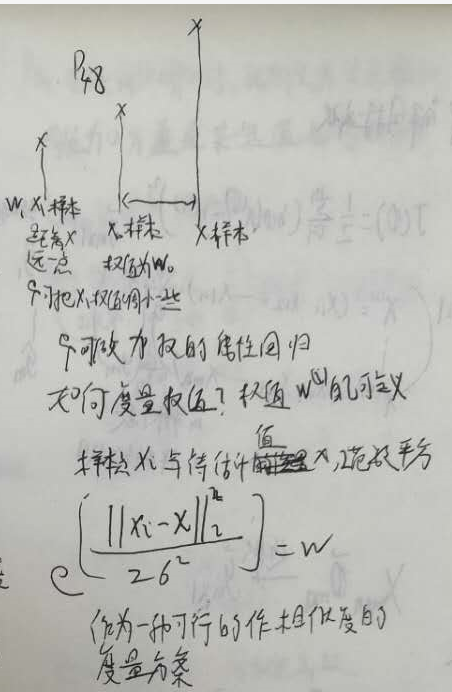 P48
W₁ X₁样本
距离X
远一点
X₀样本
权值为W₀
X样本
今可把X₁权值调小一些
今可做加权的线性回归
如何度量权值？权值W⁽ⁱ⁾的可定义
样本Xi与待估计值X，2范数平方
e^(||xi-x||₂² / 2σ²) = w
作为一种可行的作相似度的
度量方案